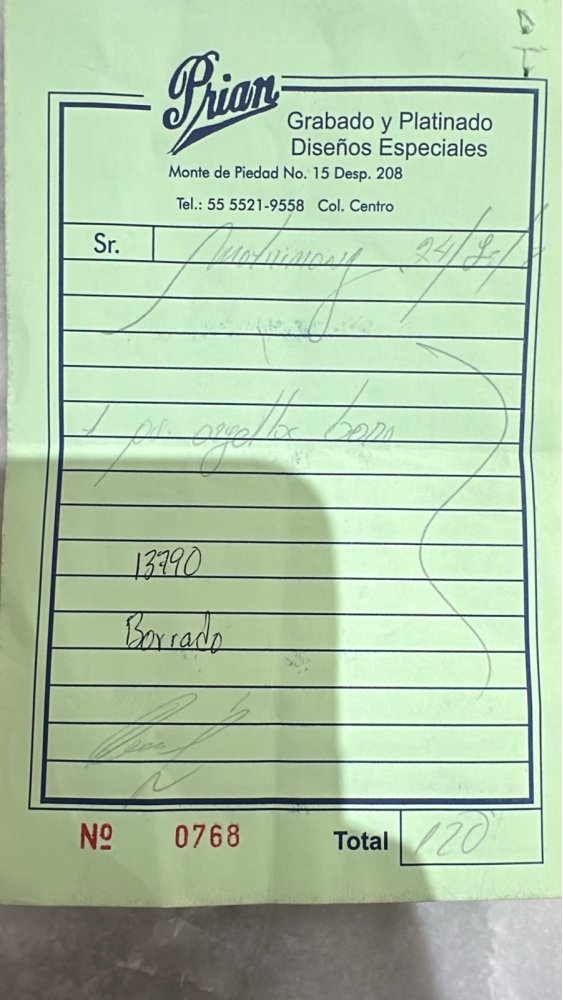 Prian
Grabado y Platinado
Diseños Especiales
Monte de Piedad No. 15 Desp. 208
Tel.: 55 5521-9558 Col. Centro
Sr.
Matrimony
1 par argolla borro
13790
Borrado
Nº 0768 Total 120